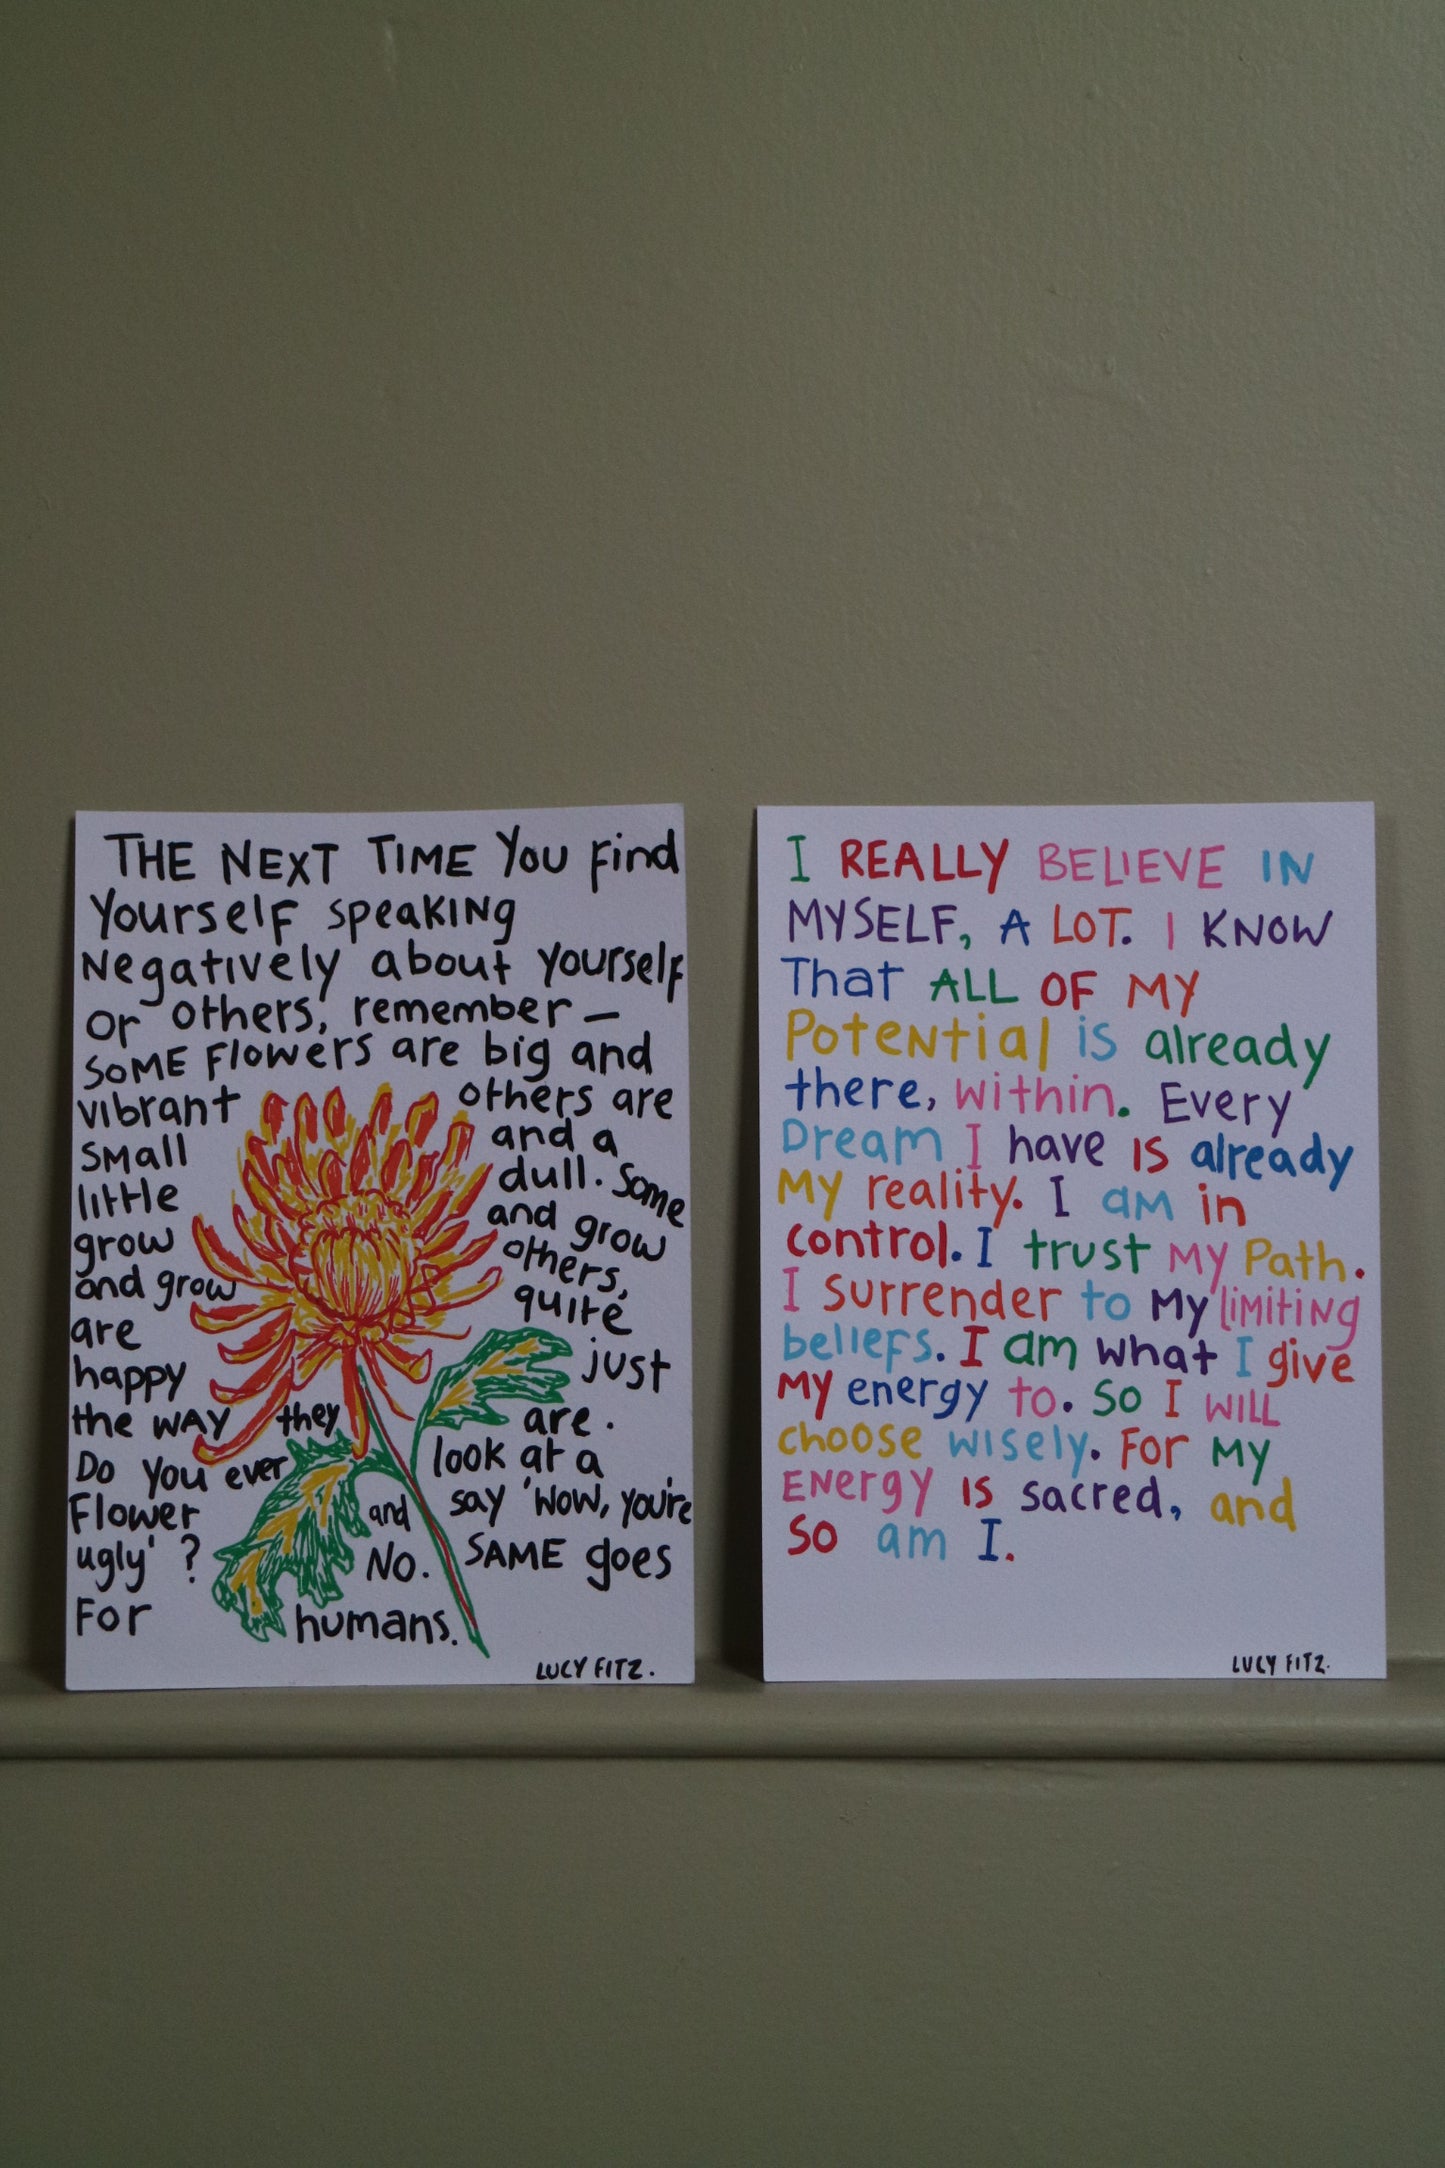 THE NEXT TIME You find
Yourself speaking
Negatively about yourself
or others, remember —
SOME Flowers are big and
vibrant others are
small and a
little dull. Some
grow and grow
and grow others,
are quite
happy just
the WAY they are.
Do you ever look at a
Flower and say 'WOW, you're
ugly' ? NO. SAME goes
For humans.
LUCY FITZ.
I REALLY BELIEVE IN
MYSELF, A LOT. I KNOW
That ALL OF MY
Potential is already
there, within. Every
Dream I have is already
My reality. I am in
control. I trust My Path.
I surrender to My limiting
beliefs. I am what I give
My energy to. So I WILL
choose wisely. For My
Energy is sacred, and
so am I.
LUCY FITZ.